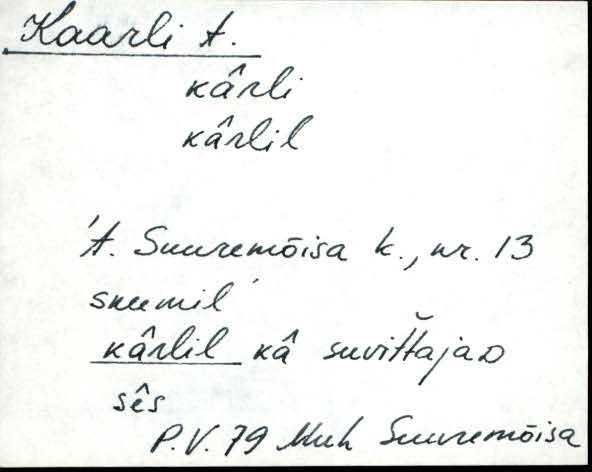 Kaarli t.
kârli
kârlil
't. Suuremõisa k., nr. 13
snumil'
kârlil kâ suvittajaD
sês
P.V. 79 Muh Suuremõisa